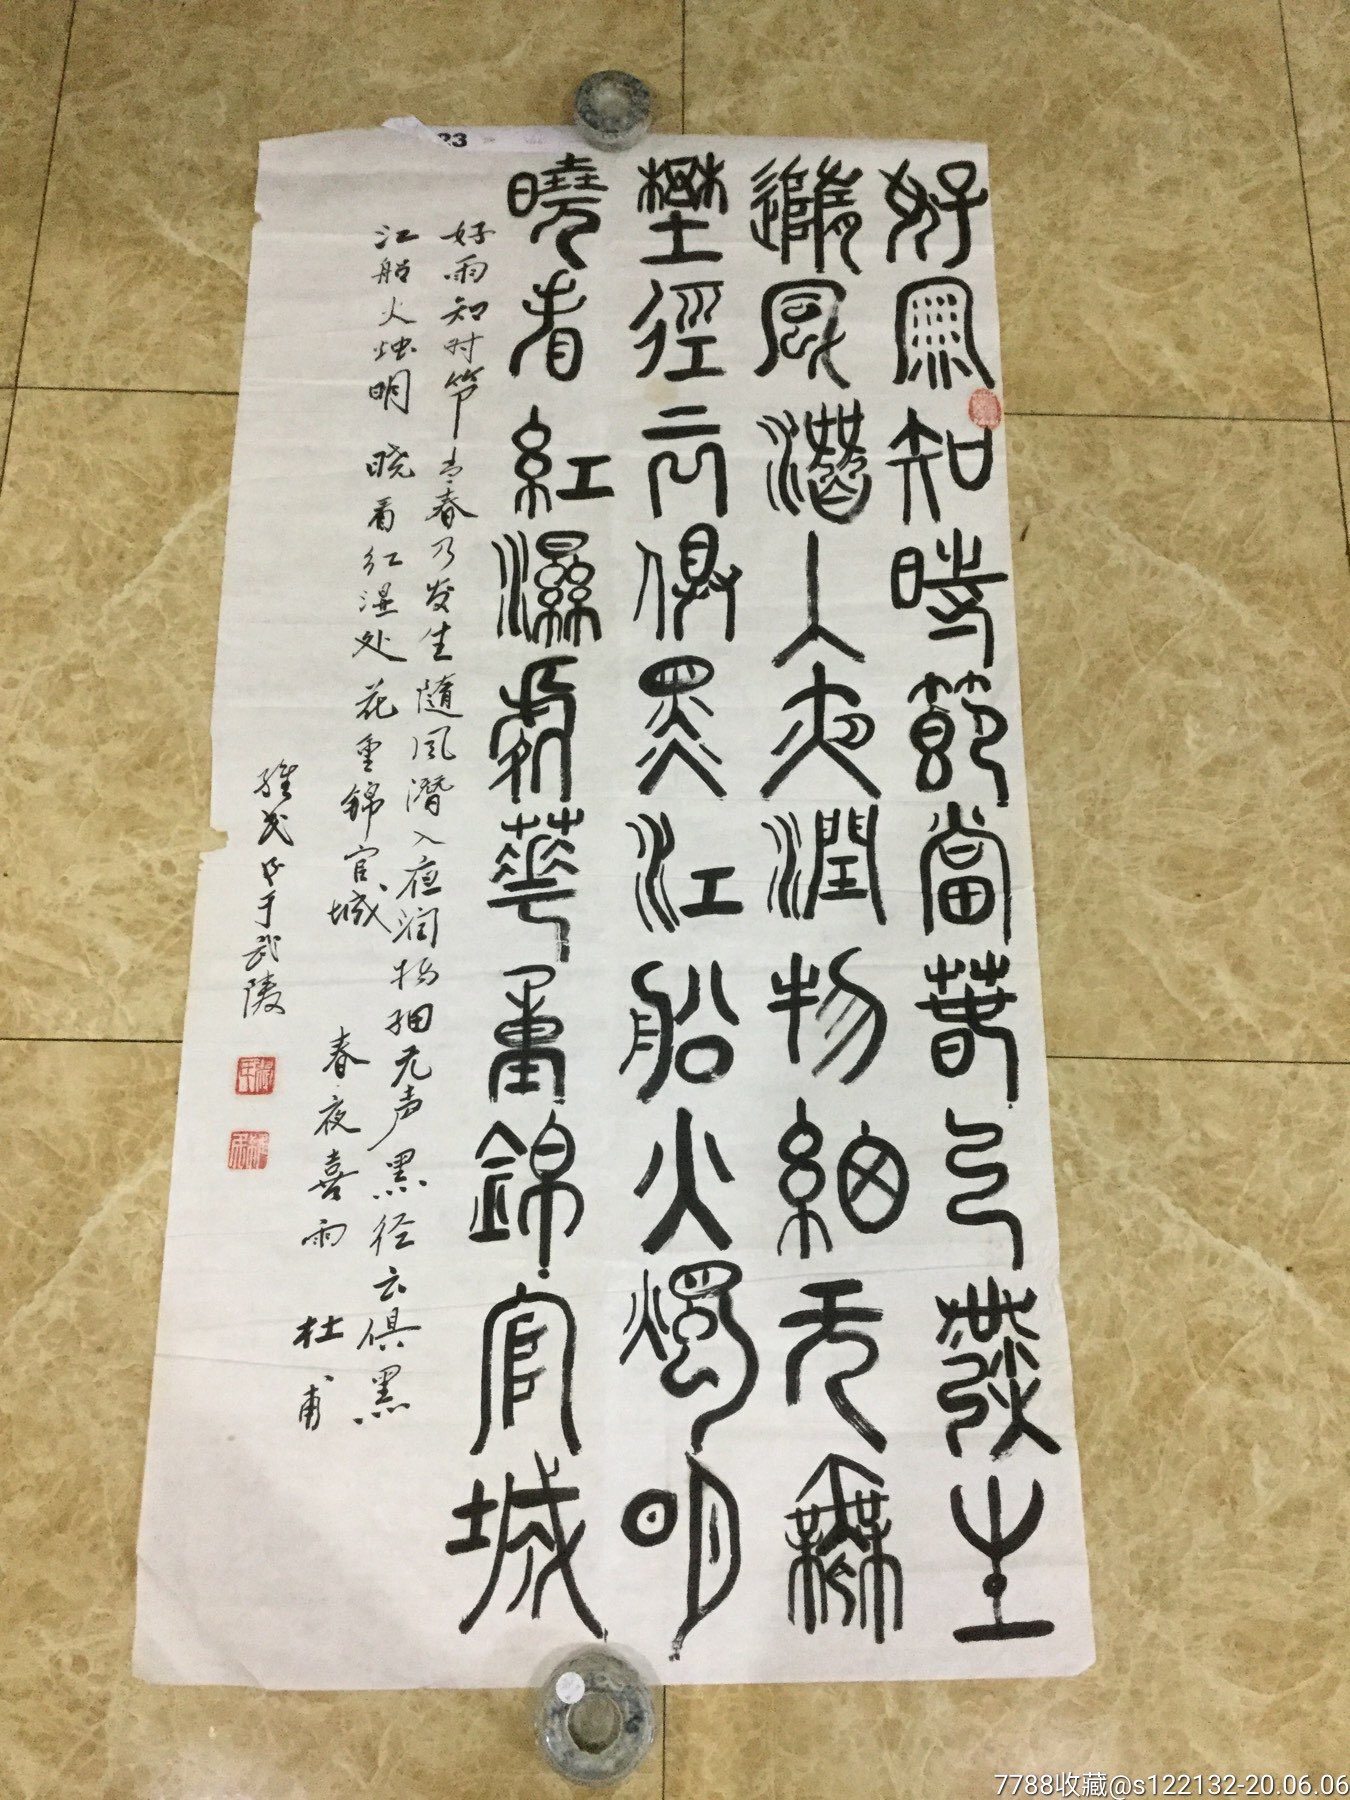 23
好雨知時節當春乃發生
隨風潛入夜潤物細无
壄徑云俱黑江船火燭明
曉看紅濕處華重錦官城
好雨知时节当春乃发生随风潜入夜润物细无声黑径云俱黑
江船火烛明晓看红湿处花重锦官城
春夜喜雨 杜甫
维民书于武陵
7788收藏@s122132-20.06.06